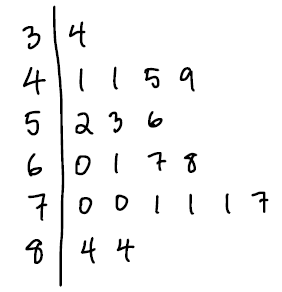 3 | 4
4 | 1 1 5 9
5 | 2 3 6
6 | 0 1 7 8
7 | 0 0 1 1 1 7
8 | 4 4